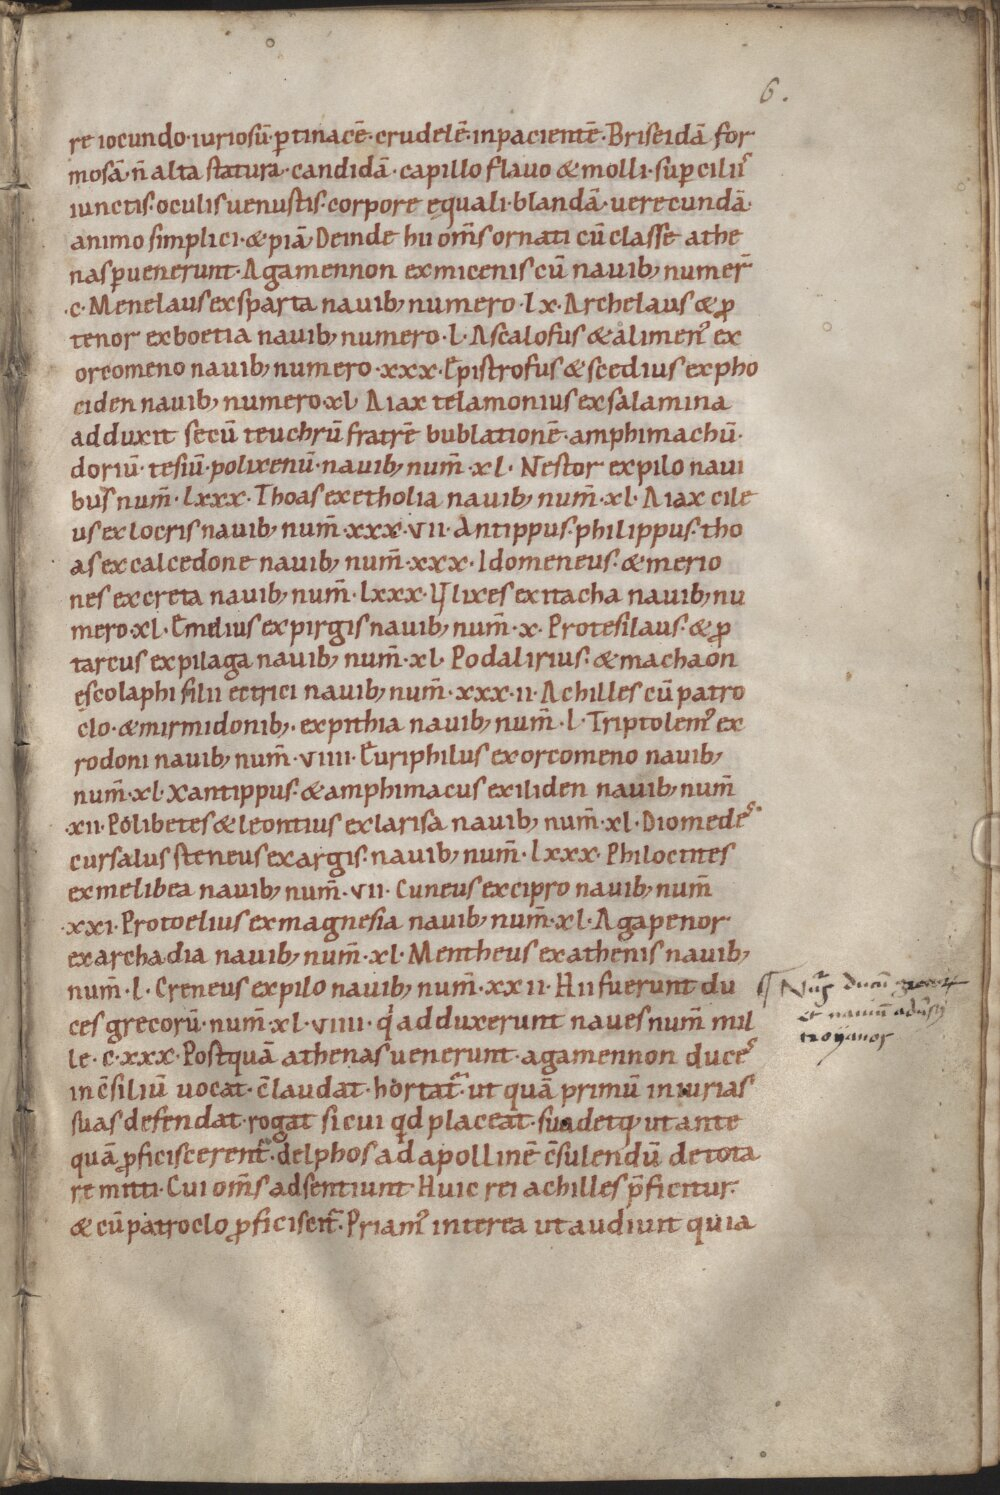 6.
re iocundo· iuriosū· ꝑtinacē· crudelē· inpacientē· Briseidā for
mosā· n̄ alta statura· candidā· capillo flauo & molli· suꝑciliis
iunctis· oculis uenustis· corpore ęquali· blandā· uerecundā·
animo simplici· & piā· Deinde hii om̄s ornati cū classe athe
nas ꝑuenerunt· Agamennon ex micenis cū nauib; numer̄
·c· Menelaus ex sparta nauib; numero· lx· Archelaus & ꝓ
tenor ex boetia nauib; numero· l· Ascalofus & alimen᾿ ex
orcomeno nauib; numero· xxx· Epistrofus & scedius ex pho
ciden nauib; numero· xl· Aiax telamonius ex salamina
adduxit secū teuchrū fratrē bublationē· amphimachū·
doriū· tesiū· polixenū· nauib; num̄· xl· Nestor ex pilo naui
bus num̄· lxxx· Thoas ex etholia nauib; num̄· xl· Aiax cile
us ex locris nauib; num̄· xxx·vii· Antippus· philippus· tho
as ex calcedone nauib; num̄· xxx· Idomeneus· & merio
nes ex creta nauib; num̄· lxxx· Ylixes ex itacha nauib; nu
mero· xl· Emelius ex pirgis nauib; num̄· x· Protesilaus· & ꝓ
tarcus ex pilaga nauib; num̄· xl· Podalirius· & machaon
ęscolaphi filii ectrici nauib; num̄· xxx·ii· Achilles cū patro
clo· & mirmidonib;· ex pithia nauib; num̄· l· Triptolem᾿ ex
rodoni nauib; num̄· viiii· Euriphilus ex orcomeno nauib;
num̄· xl· Xantippus· & amphimacus ex iliden nauib; num̄
·xii· Polibetes & leontius ex larisa nauib; num̄· xl· Diomedes·
cursalus steneus ex argis· nauib; num̄· lxxx· Philoctines
ex melibea nauib; num̄· vii· Cuneus ex cipro nauib; num̄
·xxi· Protoelius ex magnesia nauib; num̄· xl· Agapenor
ex archadia nauib; num̄· xl· Mentheus ex athenis nauib;
num̄· l· Creneus ex pilo nauib; num̄· xxii· Hii fuerunt du
ces grecorū· num̄· xl·viiii· q᾿ adduxerunt naues num̄ mil
le· c·xxx· Postquā athenas uenerunt· agamennon duces
in c̄siliū uocat· c̄laudat· hortat᾿· ut quā primū iniurias
suas defendat· rogat si cui qd̄ placeat· suadetq; ut ante
quā ꝓficiscerent᾿· delphos ad apollinē c̄sulendū de tota
re mitti· Cui om̄s adsentiunt Huic rei achilles p̄ficitur·
& cū patroclo ꝓficiscit᾿· Priam᾿ interea ut audiuit quia
et nauiū
troyanos